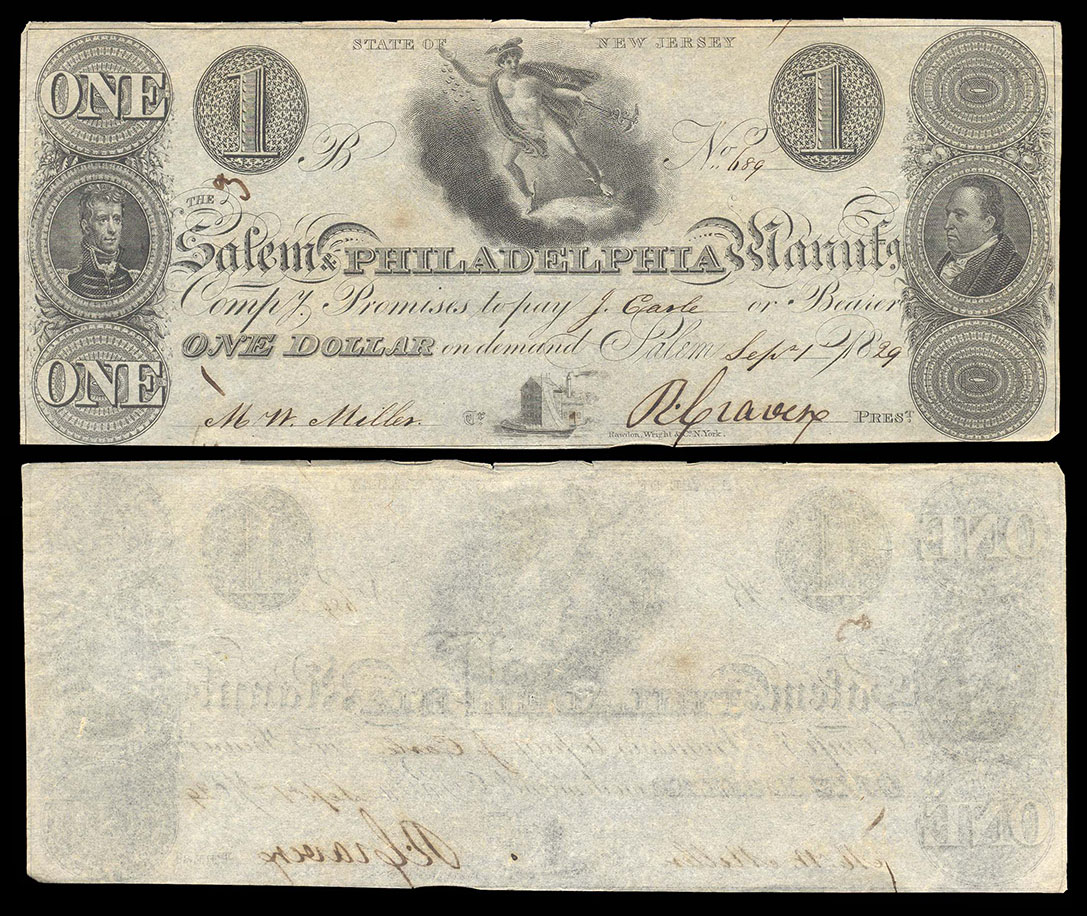 STATE OF NEW JERSEY
ONE 1 1
B No. 689
THE
Salem & PHILADELPHIA Manufg
Compy. Promises to pay J. Earle or Bearer
ONE DOLLAR on demand Salem Sept 1 1829
ONE
M. W. Miller. Tr. R. Craven PREST
Rawdon, Wright & Co. N. York.